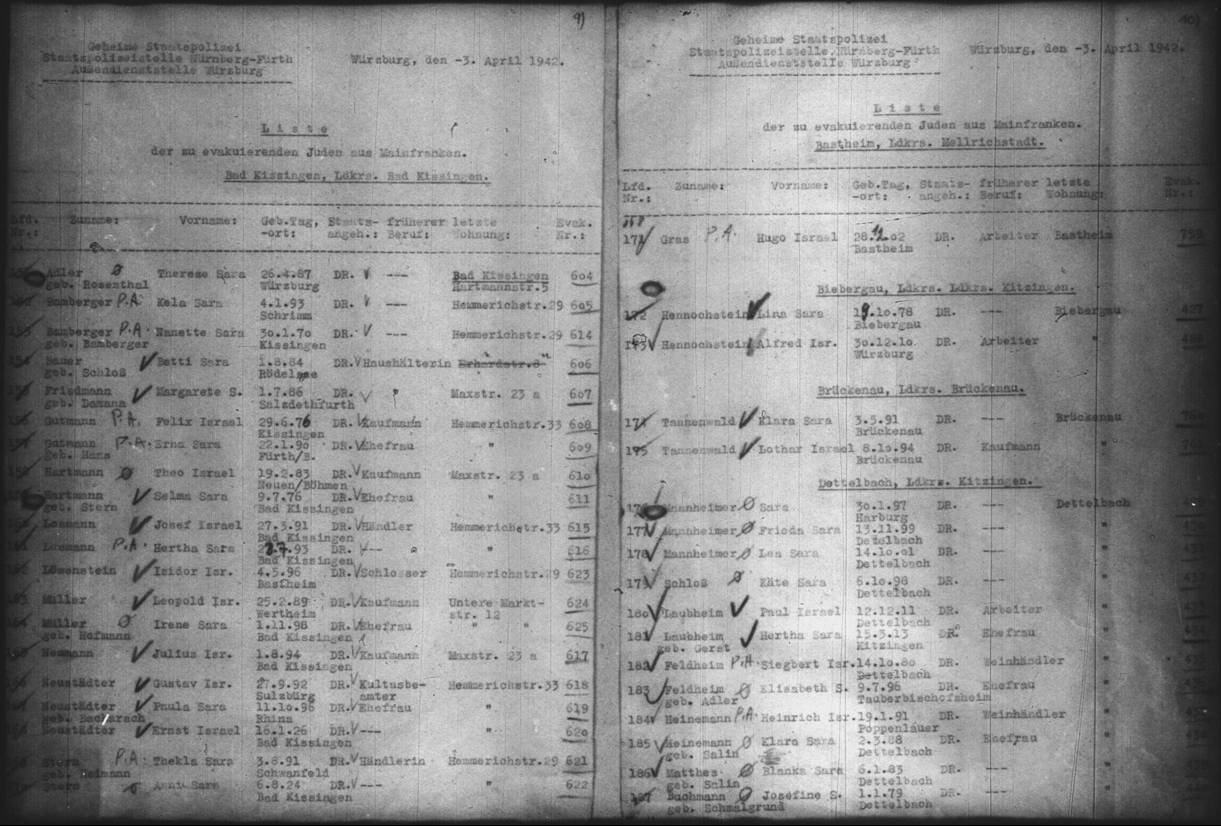 9)
Geheime Staatspolizei
Staatspolizeistelle Nürnberg-Fürth
Außendienststelle Würzburg
Würzburg, den -3. April 1942.
Liste
der zu evakuierenden Juden aus Mainfranken.
Bad Kissingen, Ldkrs. Bad Kissingen.
Lfd. Zuname: Vorname: Geb.Tag, Staats- früherer letzte Evak.
Nr.: -ort: angeh.: Beruf: Wohnung: Nr.:
Adler Therese Sara 26.4.87 DR. --- Bad Kissingen 604
geb. Rosenthal Würzburg Hartmannstr.5
Bamberger P.A. Kela Sara 4.1.93 DR. --- Hemmerichstr.29 605
Schrimm
Bamberger P.A. Nanette Sara 30.1.70 DR. --- Hemmerichstr.29 614
geb. Bamberger Kissingen
Bauer Betti Sara 1.8.84 DR. Haushälterin Erhardstr.8 606
geb. Schloß
Friedmann Margarete S. 1.7.86 DR. " Maxstr. 23 a 607
Salzdethfurth
Gutmann P.A. Felix Israel 29.6.76 DR. Kaufmann Hemmerichstr.33 608
Kissingen
Gutmann P.A. Erna Sara 22.1.90 DR. Ehefrau " 609
geb. Hans Fürth/B.
Hartmann Theo Israel 19.2.83 DR. Kaufmann Maxstr. 23 a 610
Neuen/Böhmen
Hartmann Selma Sara 9.7.76 DR. Ehefrau " 611
geb. Stern Bad Kissingen
Josef Israel 27.3.91 DR. Händler Hemmerichstr.33 615
Bad Kissingen
P.A. Hertha Sara 7.93 DR. --- " 616
Bad Kissingen
Löwenstein Isidor Isr. 4.5.96 DR. Schlosser Hemmerichstr.29 623
Bastheim
Müller Leopold Isr. 25.2.89 DR. Kaufmann Untere Markt- 624
Wertheim str. 12
Müller Irene Sara 1.11.98 DR. Ehefrau " " 625
geb. Hofmann Bad Kissingen
Julius Isr. 1.8.94 DR. Kaufmann Maxstr. 23 a 617
Bad Kissingen
Neustädter Gustav Isr. 27.9.92 DR. Kultusbe- Hemmerichstr.33 618
Sulzbürg amter
Neustädter Paula Sara 11.10.96 DR. Ehefrau " 619
geb. Bacharach Rhina
Neustädter Ernst Israel 16.1.26 DR. --- " 620
Bad Kissingen
Stern P.A. Thekla Sara 3.8.91 DR. Händlerin Hemmerichstr.29 621
geb. Heimann Schwanfeld
Stern Sara 6.8.24 DR. --- " 622
Bad Kissingen
10)
Geheime Staatspolizei
Staatspolizeistelle Nürnberg-Fürth
Außendienststelle Würzburg
Würzburg, den -3. April 1942.
Liste
der zu evakuierenden Juden aus Mainfranken.
Bastheim, Ldkrs. Mellrichstadt.
Lfd. Zuname: Vorname: Geb.Tag, Staats- früherer letzte Evak.
Nr.: -ort: angeh.: Beruf: Wohnung: Nr.:
171 Gras P.A. Hugo Israel 28.11.02 DR. Arbeiter Bastheim
Bastheim
Biebergau, Ldkrs. Ldkrs. Kitzingen.
172 Hennochstein Lina Sara 19.10.78 DR. --- Biebergau
Biebergau
173 Hennochstein Alfred Isr. 30.12.10 DR. Arbeiter "
Würzburg
Brückenau, Ldkrs. Brückenau.
174 Tannenwald Klara Sara 3.5.91 DR. --- Brückenau
Brückenau
175 Tannenwald Lothar Israel 8.10.94 DR. Kaufmann "
Brückenau
Dettelbach, Ldkrs. Kitzingen.
Mannheimer Sara 30.1.97 DR. --- Dettelbach
Harburg
177 Mannheimer Frieda Sara 13.11.99 DR. --- "
Dettelbach
178 Mannheimer Lea Sara 14.10.01 DR. --- "
Dettelbach
179 Schloß Käte Sara 6.10.98 DR. --- "
Dettelbach
180 Laubheim Paul Israel 12.12.11 DR. Arbeiter "
Dettelbach
181 Laubheim Hertha Sara 15.3.13 DR. Ehefrau "
geb. Gerst Kitzingen
182 Feldheim P.A. Siegbert Isr. 14.10.80 DR. Weinhändler "
Dettelbach
183 Feldheim Elisabeth S. 9.7.96 DR. Ehefrau "
geb. Adler Tauberbischofsheim
184 Heinemann P.A. Heinrich Isr. 19.1.91 DR. Weinhändler "
Poppenlauer
185 Heinemann Klara Sara 2.3.88 DR. Ehefrau "
geb. Salin Dettelbach
186 Matthes Blanka Sara 6.1.83 DR. --- "
geb. Salin Dettelbach
187 Buchmann Josefine S. 1.1.79 DR. --- "
geb. Schmalgrund Dettelbach